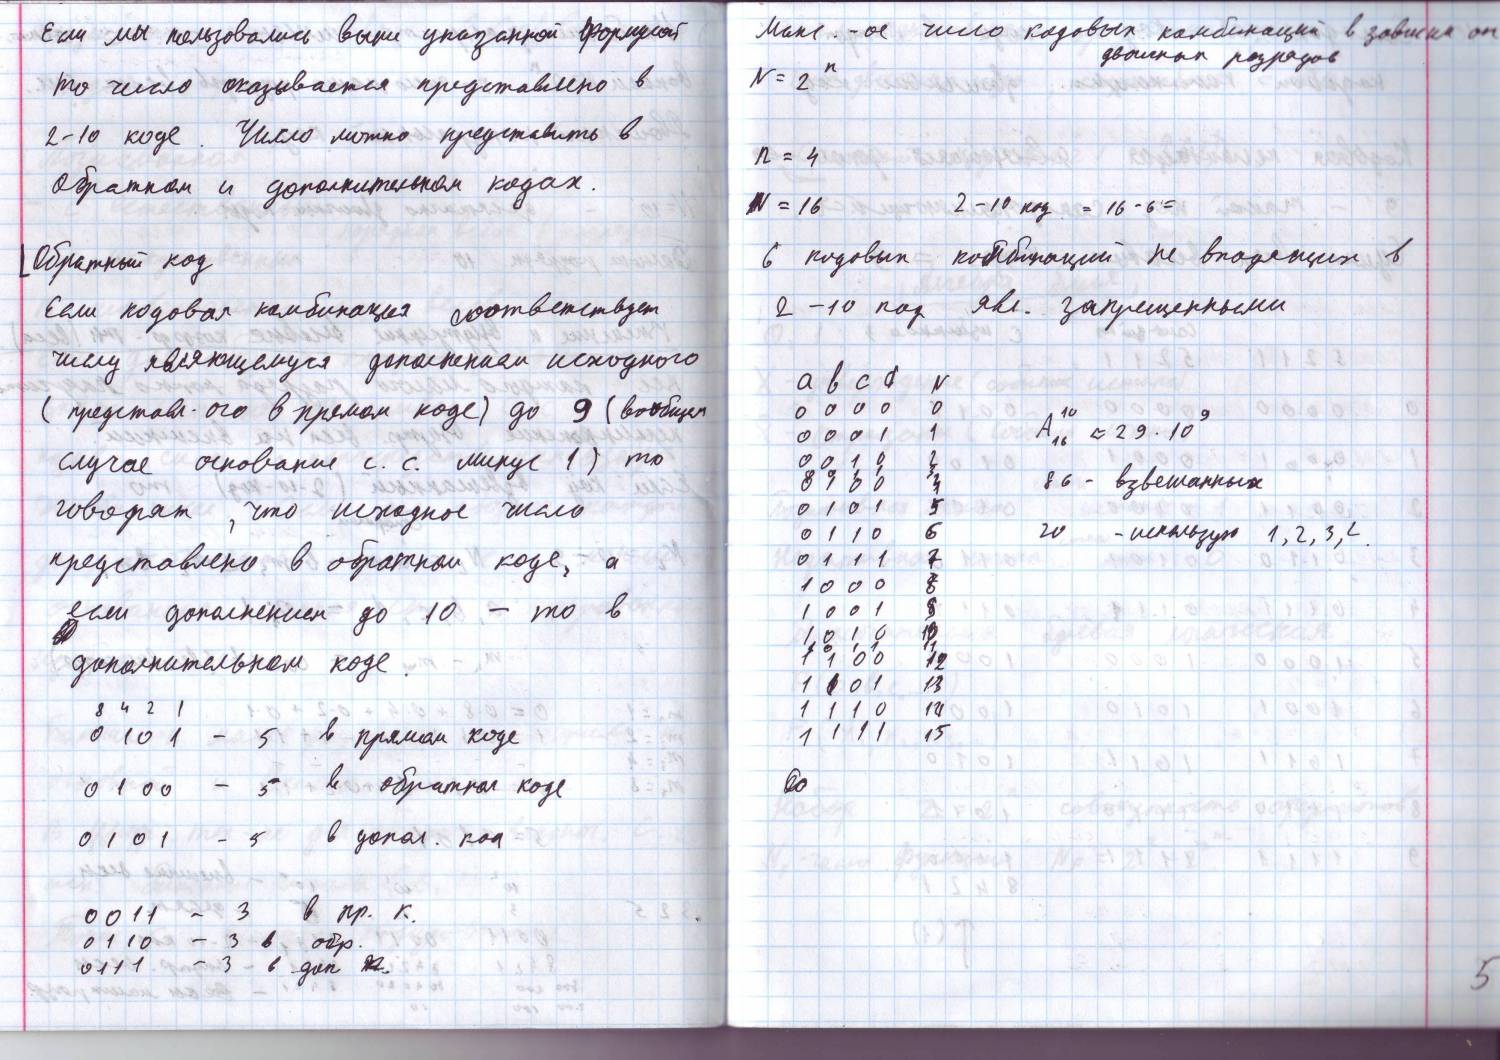 Если мы пользовались выше указанной формулой
то число оказывается представлено в
2-10 коде. Число можно представить в
обратном и дополнительном кодах.
Обратный код
Если кодовая комбинация соответствует
числу являющемуся дополнением исходного
(представл-ого в прямом коде) до 9 (вообщем
случае основание с.с. минус 1) то
говорят, что исходное число
представлено в обратном коде, а
если дополнением до 10 – то в
дополнительном коде.
8 4 2 1
0 1 0 1 – 5 в прямом коде
0 1 0 0 – 5 в обратном коде
0 1 0 1 – 5 в допол. код
0 0 1 1 – 3 в пр. к.
0 1 1 0 – 3 в обр.
0 1 1 1 – 3 – в доп к.
Макс.-ое число кодовых комбинаций в зависим от
двоичных разрядов
N = 2^n
n = 4
N = 16 2-10 код = 16-6=
6 кодовых комбинаций не входящих в
2-10 код явл. запрещенными
a b c d N
0 0 0 0 0
0 0 0 1 1
0 0 1 0 2
0 0 1 1 3
0 1 0 0 4
0 1 0 1 5
0 1 1 0 6
0 1 1 1 7
1 0 0 0 8
1 0 0 1 9
1 0 1 0 10
1 0 1 1 11
1 1 0 0 12
1 1 0 1 13
1 1 1 0 14
1 1 1 1 15
A₁₆¹⁰ ≈ 29·10⁹
86 – взвешанных
20 – использую 1, 2, 3, 4.
5